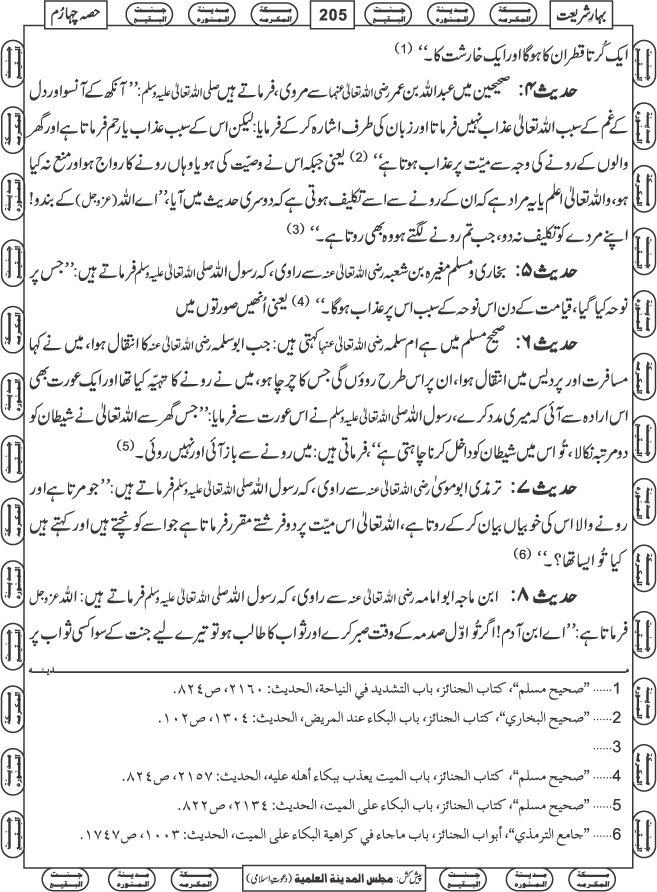 بہارِ شریعت
205
حصہ چہارم
ایک کُرتا قطران کا ہوگا اور ایک خارشت کا۔‘‘ (1)
حدیث ۴: صحیحین میں عبداللہ بن عمر رضی اللہ تعالیٰ عنہما سے مروی، فرماتے ہیں صلی اللہ تعالیٰ علیہ وسلم: ’’آنکھ کے آنسو اور دل
کے غم کے سبب اللہ تعالیٰ عذاب نہیں فرماتا اور زبان کی طرف اشارہ کرکے فرمایا: لیکن اس کے سبب عذاب یا رحم فرماتا ہے اور گھر
والوں کے رونے کی وجہ سے میّت پر عذاب ہوتا ہے‘‘ (2) یعنی جبکہ اس نے وصیّت کی ہو یا وہاں رونے کا رواج ہو اور منع نہ کیا
ہو، واللہ تعالیٰ اعلم یا یہ مراد ہے کہ ان کے رونے سے اسے تکلیف ہوتی ہے کہ دوسری حدیث میں آیا، ’’اے اللہ (عزوجل) کے بندو!
اپنے مردے کو تکلیف نہ دو، جب تم رونے لگتے ہو وہ بھی روتا ہے۔‘‘ (3)
حدیث ۵: بخاری و مسلم مغیرہ بن شعبہ رضی اللہ تعالیٰ عنہ سے راوی، کہ رسول اللہ صلی اللہ تعالیٰ علیہ وسلم فرماتے ہیں: ’’جس پر
نوحہ کیا گیا، قیامت کے دن اس نوحہ کے سبب اس پر عذاب ہوگا۔‘‘ (4) یعنی اُنھیں صورتوں میں
حدیث ۶: صحیح مسلم میں ہے ام سلمہ رضی اللہ تعالیٰ عنہا کہتی ہیں: جب ابو سلمہ رضی اللہ تعالیٰ عنہ کا انتقال ہوا، میں نے کہا
مسافرت اور پردیس میں انتقال ہوا، ان پر اس طرح روؤں گی جس کا چرچا ہو، میں نے رونے کا تہیّہ کیا تھا اور ایک عورت بھی
اس ارادہ سے آئی کہ میری مدد کرے، رسول اللہ صلی اللہ تعالیٰ علیہ وسلم نے اس عورت سے فرمایا: ’’جس گھر سے اللہ تعالیٰ نے شیطان کو
دو مرتبہ نکالا، تُو اس میں شیطان کو داخل کرنا چاہتی ہے‘‘، فرماتی ہیں: میں رونے سے باز آئی اور نہیں روئی۔ (5)
حدیث ۷: ترمذی ابوموسیٰ رضی اللہ تعالیٰ عنہ سے راوی، کہ رسول اللہ صلی اللہ تعالیٰ علیہ وسلم فرماتے ہیں: ’’جو مرتا ہے اور
رونے والا اس کی خوبیاں بیان کر کے روتا ہے، اللہ تعالیٰ اس میّت پر دو فرشتے مقرر فرماتا ہے جو اسے کونچتے ہیں اور کہتے ہیں
کیا تُو ایسا تھا؟۔‘‘ (6)
حدیث ۸: ابن ماجہ ابوامامہ رضی اللہ تعالیٰ عنہ سے راوی، کہ رسول اللہ صلی اللہ تعالیٰ علیہ وسلم فرماتے ہیں: اللہ عزوجل
فرماتا ہے: ’’اے ابن آدم! اگر تُو اوّل صدمہ کے وقت صبر کرے اور ثواب کا طالب ہو تو تیرے لیے جنت کے سوا کسی ثواب پر
مدینہ
1...... ’’صحيح مسلم‘‘، كتاب الجنائز، باب التشديد في النياحة، الحديث: ٢١٦٠، ص٨٢٤.
2...... ’’صحيح البخاري‘‘، كتاب الجنائز، باب البكاء عند المريض، الحديث: ١٣٠٤، ص١٠٢.
3......
4...... ’’صحيح مسلم‘‘، كتاب الجنائز، باب الميت يعذب ببكاء أهله عليه، الحديث: ٢١٥٧، ص٨٢٤.
5...... ’’صحيح مسلم‘‘، كتاب الجنائز، باب البكاء على الميت، الحديث: ٢١٣٤، ص٨٢٢.
6...... ’’جامع الترمذي‘‘، أبواب الجنائز، باب ماجاء في كراهية البكاء على الميت، الحديث: ١٠٠٣، ص١٧٤٧.
پیش کش: مجلس المدینة العلمیة (دعوتِ اسلامی)